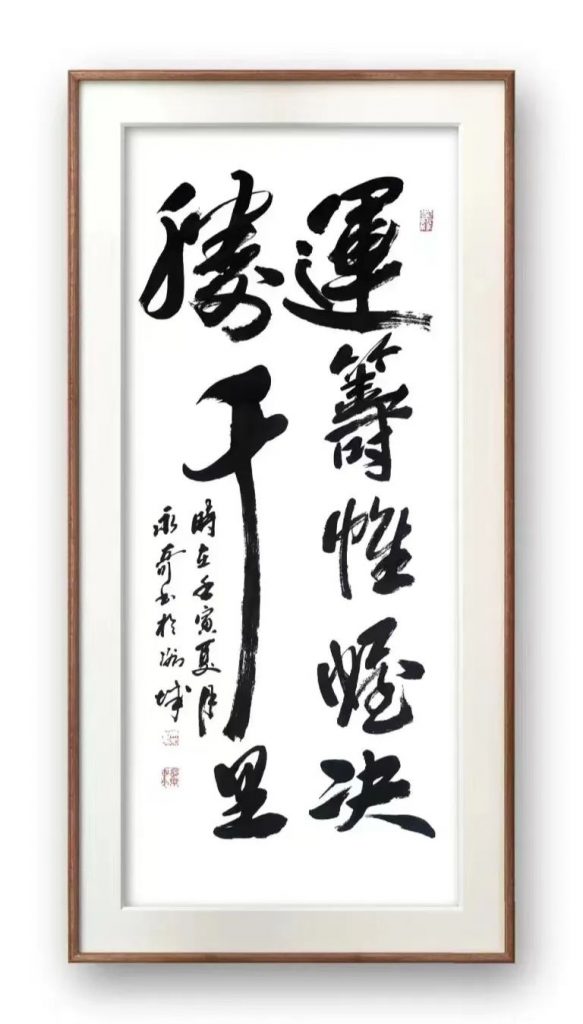 運籌帷幄决
勝千里
時在壬寅夏月
永奇书於城